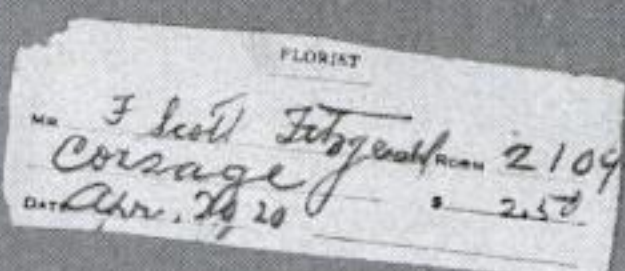 FLORIST
MR. F Scott Fitzgerald ROOM 2109
Corsage $ 2.50
DATE Apr. 20